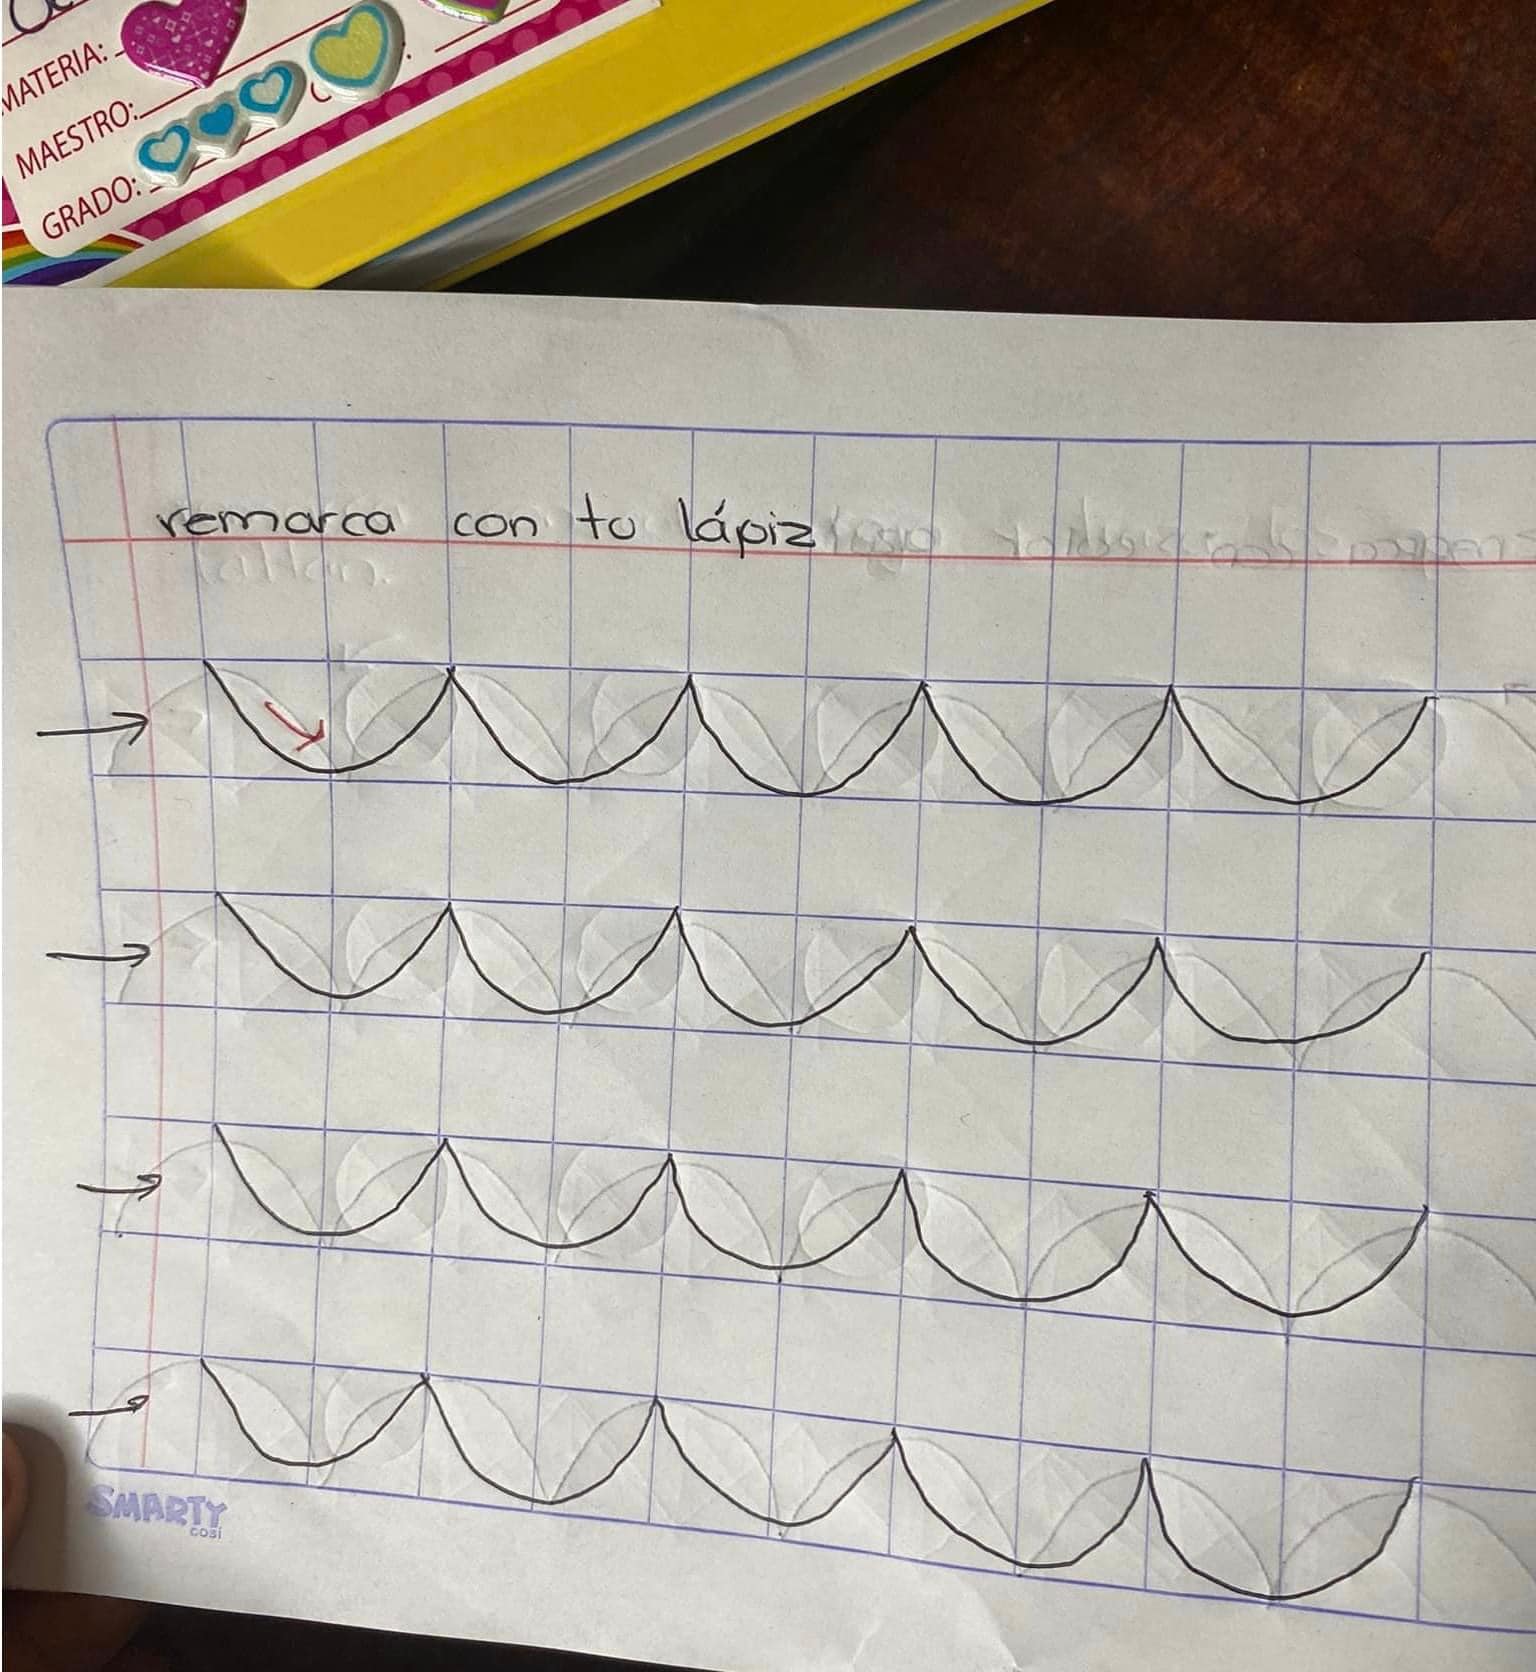 MATERIA:
MAESTRO:
GRADO:
remarca con tu lápiz
SMARTY
cosí